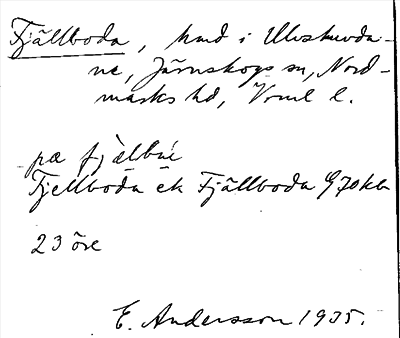 Fjällboda, hmd i Ulvskuvda-
ne, Järnskogs sn, Nord-
marks hd, Vrml l.
pæ fjælbuè
Fjellboda ek Fjällboda G 70 kbl
23 öre
E. Andersson 1935.